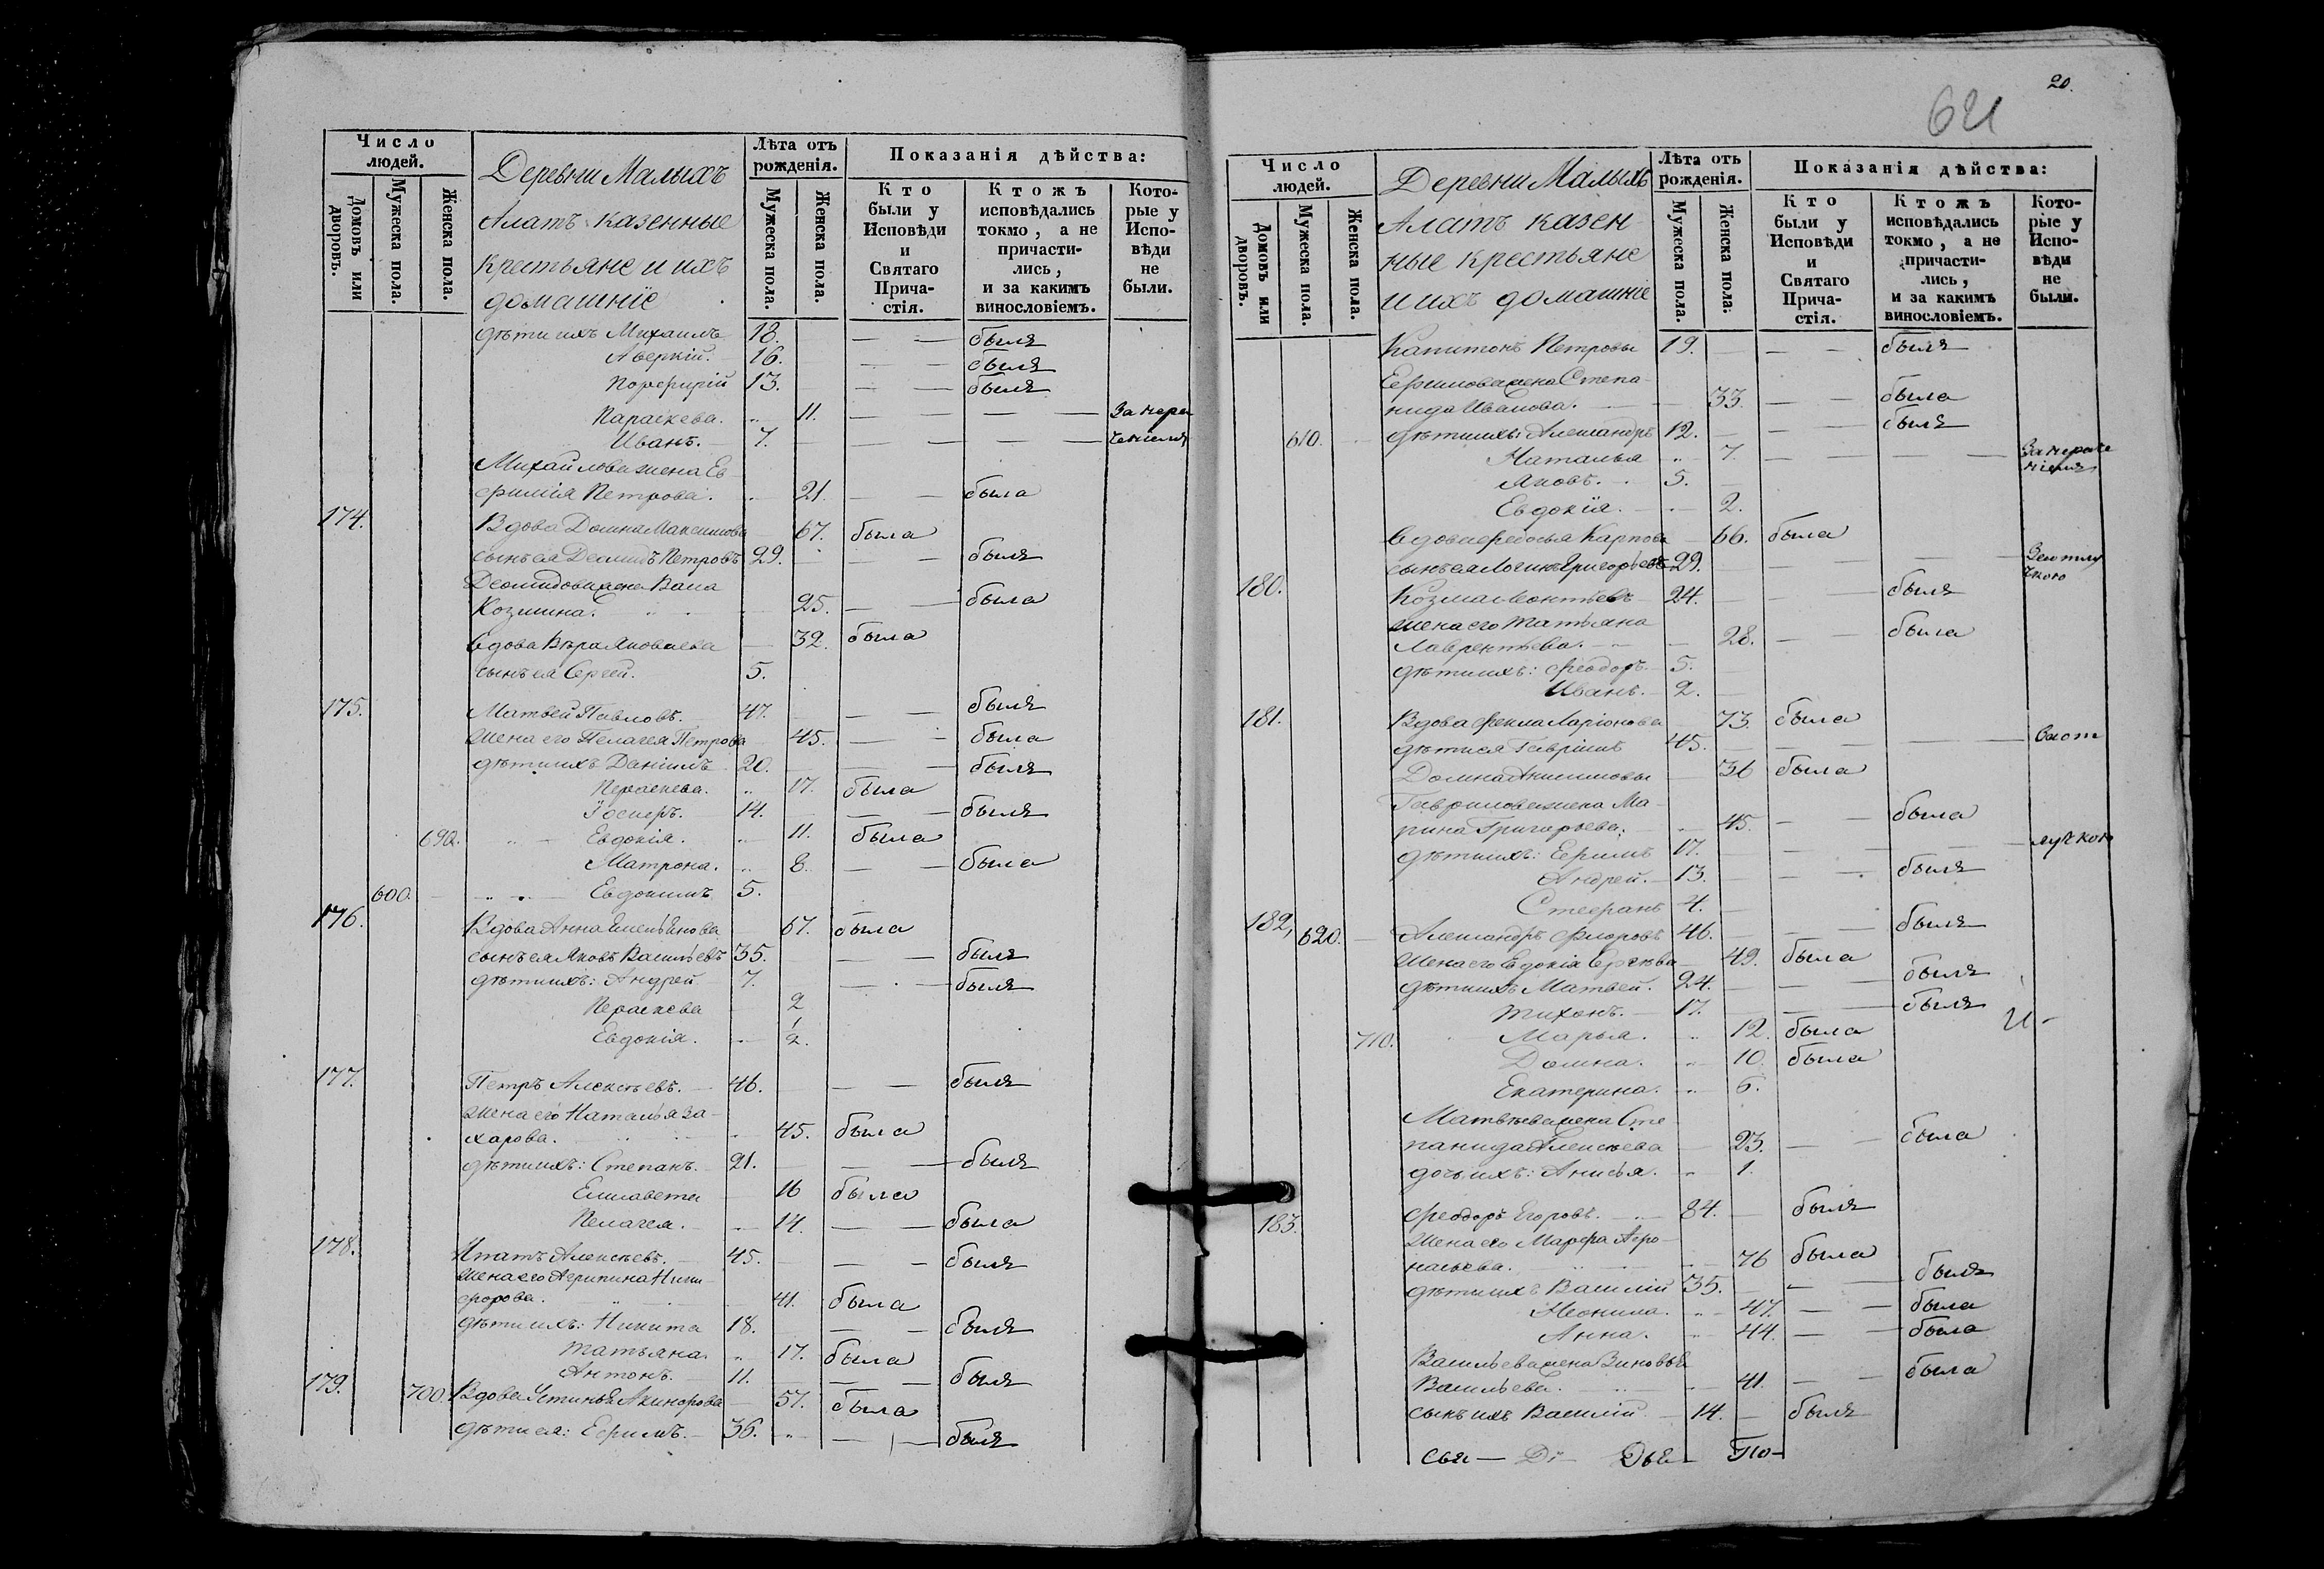 Число людей.
Домовъ или дворовъ.
Мужеска пола.
Женска пола.
Деревни Малыхъ
Алатъ казенные
крестьяне и ихъ
домашніе
Лѣта отъ рожденія.
Мужеска пола.
Женска пола.
Показанія дѣйства:
Кто были у Исповѣди и Святаго Причастія.
Ктожъ исповѣдались токмо, а не причастились, и за какимъ винословіемъ.
Которые у Исповѣди не были.
дѣти ихъ Михаилъ 18. былъ
Аверкій. 16. былъ
Порфирій 13. былъ
Параскева. 11.
Иванъ. 7.
Михайлова жена Ев
фимія Петрова. 21. была
174. Вдова Домна Максимова 67. была
сынъ ея Деомидъ Петровъ 29. былъ
Деомидова жена Васа
Козмина. 25. была
вдова Вѣра Яковлева 32. была
сынъ ея Сергей. 5.
175. Матвей Павловъ. 47. былъ
жена его Пелагея Петрова 45. была
дѣти ихъ Даніилъ 20. былъ
Пераскева. 17. была
Іосифъ. 14. былъ
692. Евдокія. 11. была
Матрона. 8. была
600. Евдокимъ 5.
176. Вдова Анна Емельянова 67. была
сынъ ея Яковъ Васильевъ 35. былъ
дѣти ихъ: Андрей 7. былъ
Пераскева 2
Евдокія. 1/2.
177. Петръ Алексѣевъ. 46. былъ
жена его Наталья За-
харова. 45. была
дѣти ихъ: Степанъ. 21. былъ
Елисавета 16 была
Пелагея. 14. была
178. Ипатъ Алексѣевъ. 45. былъ
жена его Агрипина Ники-
форова. 41. была
дѣти ихъ: Никита 18. былъ
Татьяна. 17. была
Антонъ. 11. былъ
179. 700. Вдова Устинья Акинфова 57. была
дѣти ея: Ефимъ. 36. былъ
20.
Число людей.
Домовъ или дворовъ.
Мужеска пола.
Женска пола.
Деревни Малыхъ
Алатъ казен-
ные крестьяне
и ихъ домашніе
Лѣта отъ рожденія.
Мужеска пола.
Женска пола.
Показанія дѣйства:
Кто были у Исповѣди и Святаго Причастія.
Ктожъ исповѣдались токмо, а не причастились, и за какимъ винословіемъ.
Которые у Исповѣди не были.
Капитонъ Петровы 19. былъ
Ефимова жена Степа-
нида Иванова. 33. была
610. дѣти ихъ: Александръ 12. былъ
Наталья 7.
Яковъ. 5.
Евдокія. 2.
вдова Федосья Карпова 66. была
сынъ ея Логинъ Григорьевъ 29.
180. Козма Леонтьевъ 24. былъ
жена его Татьяна
Лаврентьева. 28. была
дѣти ихъ: Феодоръ. 5.
Иванъ. 2.
181. Вдова Фекла Ларіонова 73. была
дѣти ея Гавріилъ 45.
Домна Анисимовы 36 была
Гаврилова жена Ма-
рина Григорьева. 45. была
дѣти ихъ: Ефимъ 17.
Андрей. 13. былъ
Стефанъ 4.
182, 620. Александръ Флоровъ 46. былъ
жена его Евдокія Сергѣева 49. была
дѣти ихъ Матвей. 24. былъ
Тихонъ. 17. былъ
710. Марья. 12. была
Домна. 10. была
Екатерина. 6.
Матвѣева жена Сте-
панида Алексѣева 23. была
дочь ихъ: Анисья. 1.
183. Феодоръ Егоровъ. 84. былъ
жена его Марфа Афо-
насьева. 76 была
дѣти ихъ Василій 35. былъ
Неонила. 47. была
Анна. 44. была
Васильева жена Зиновья
Васильева. 41. была
сынъ ихъ Василій 14. былъ